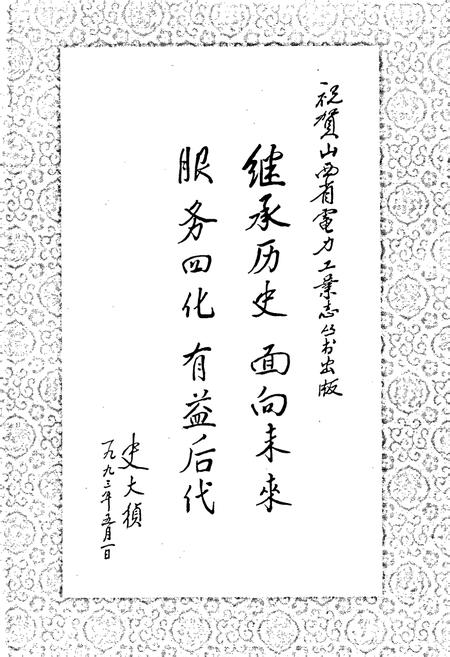 祝贺山西省電力工业志丛书出版
继承历史 面向未來
服务四化 有益后代
史大桢
一九九三年五月一日